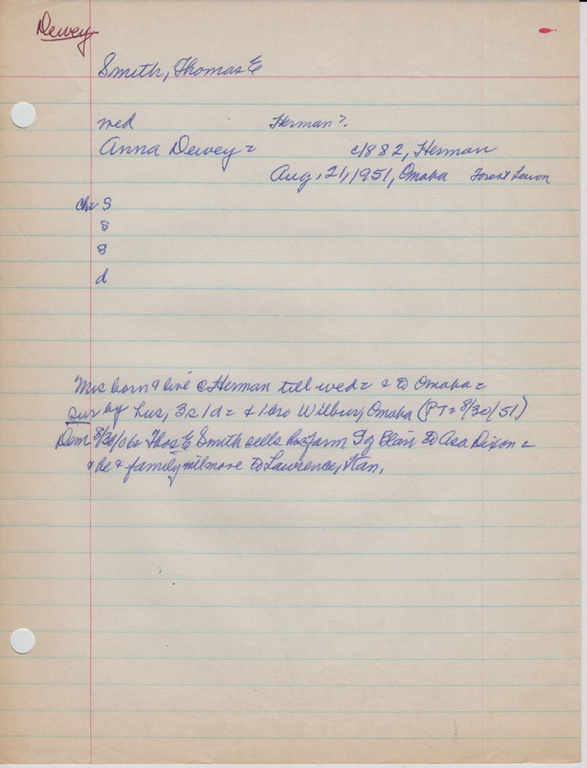 Dewey
Smith, Thomas E
wed Herman?.
Anna Dewey = c1882, Herman
Aug, 21, 1951, Omaha Forest Lawn
chr S
s
s
d
Mrs born & live @ Herman till wed = & to Omaha =
sur by hus, 3s 1d = & 1 bro Wilbur, Omaha (PT = 8/30/51)
Dem 8/30/06 Thos E Smith sells farm of Blair to Asa Dixon =
& he & family will move to Lawrence, Kan.